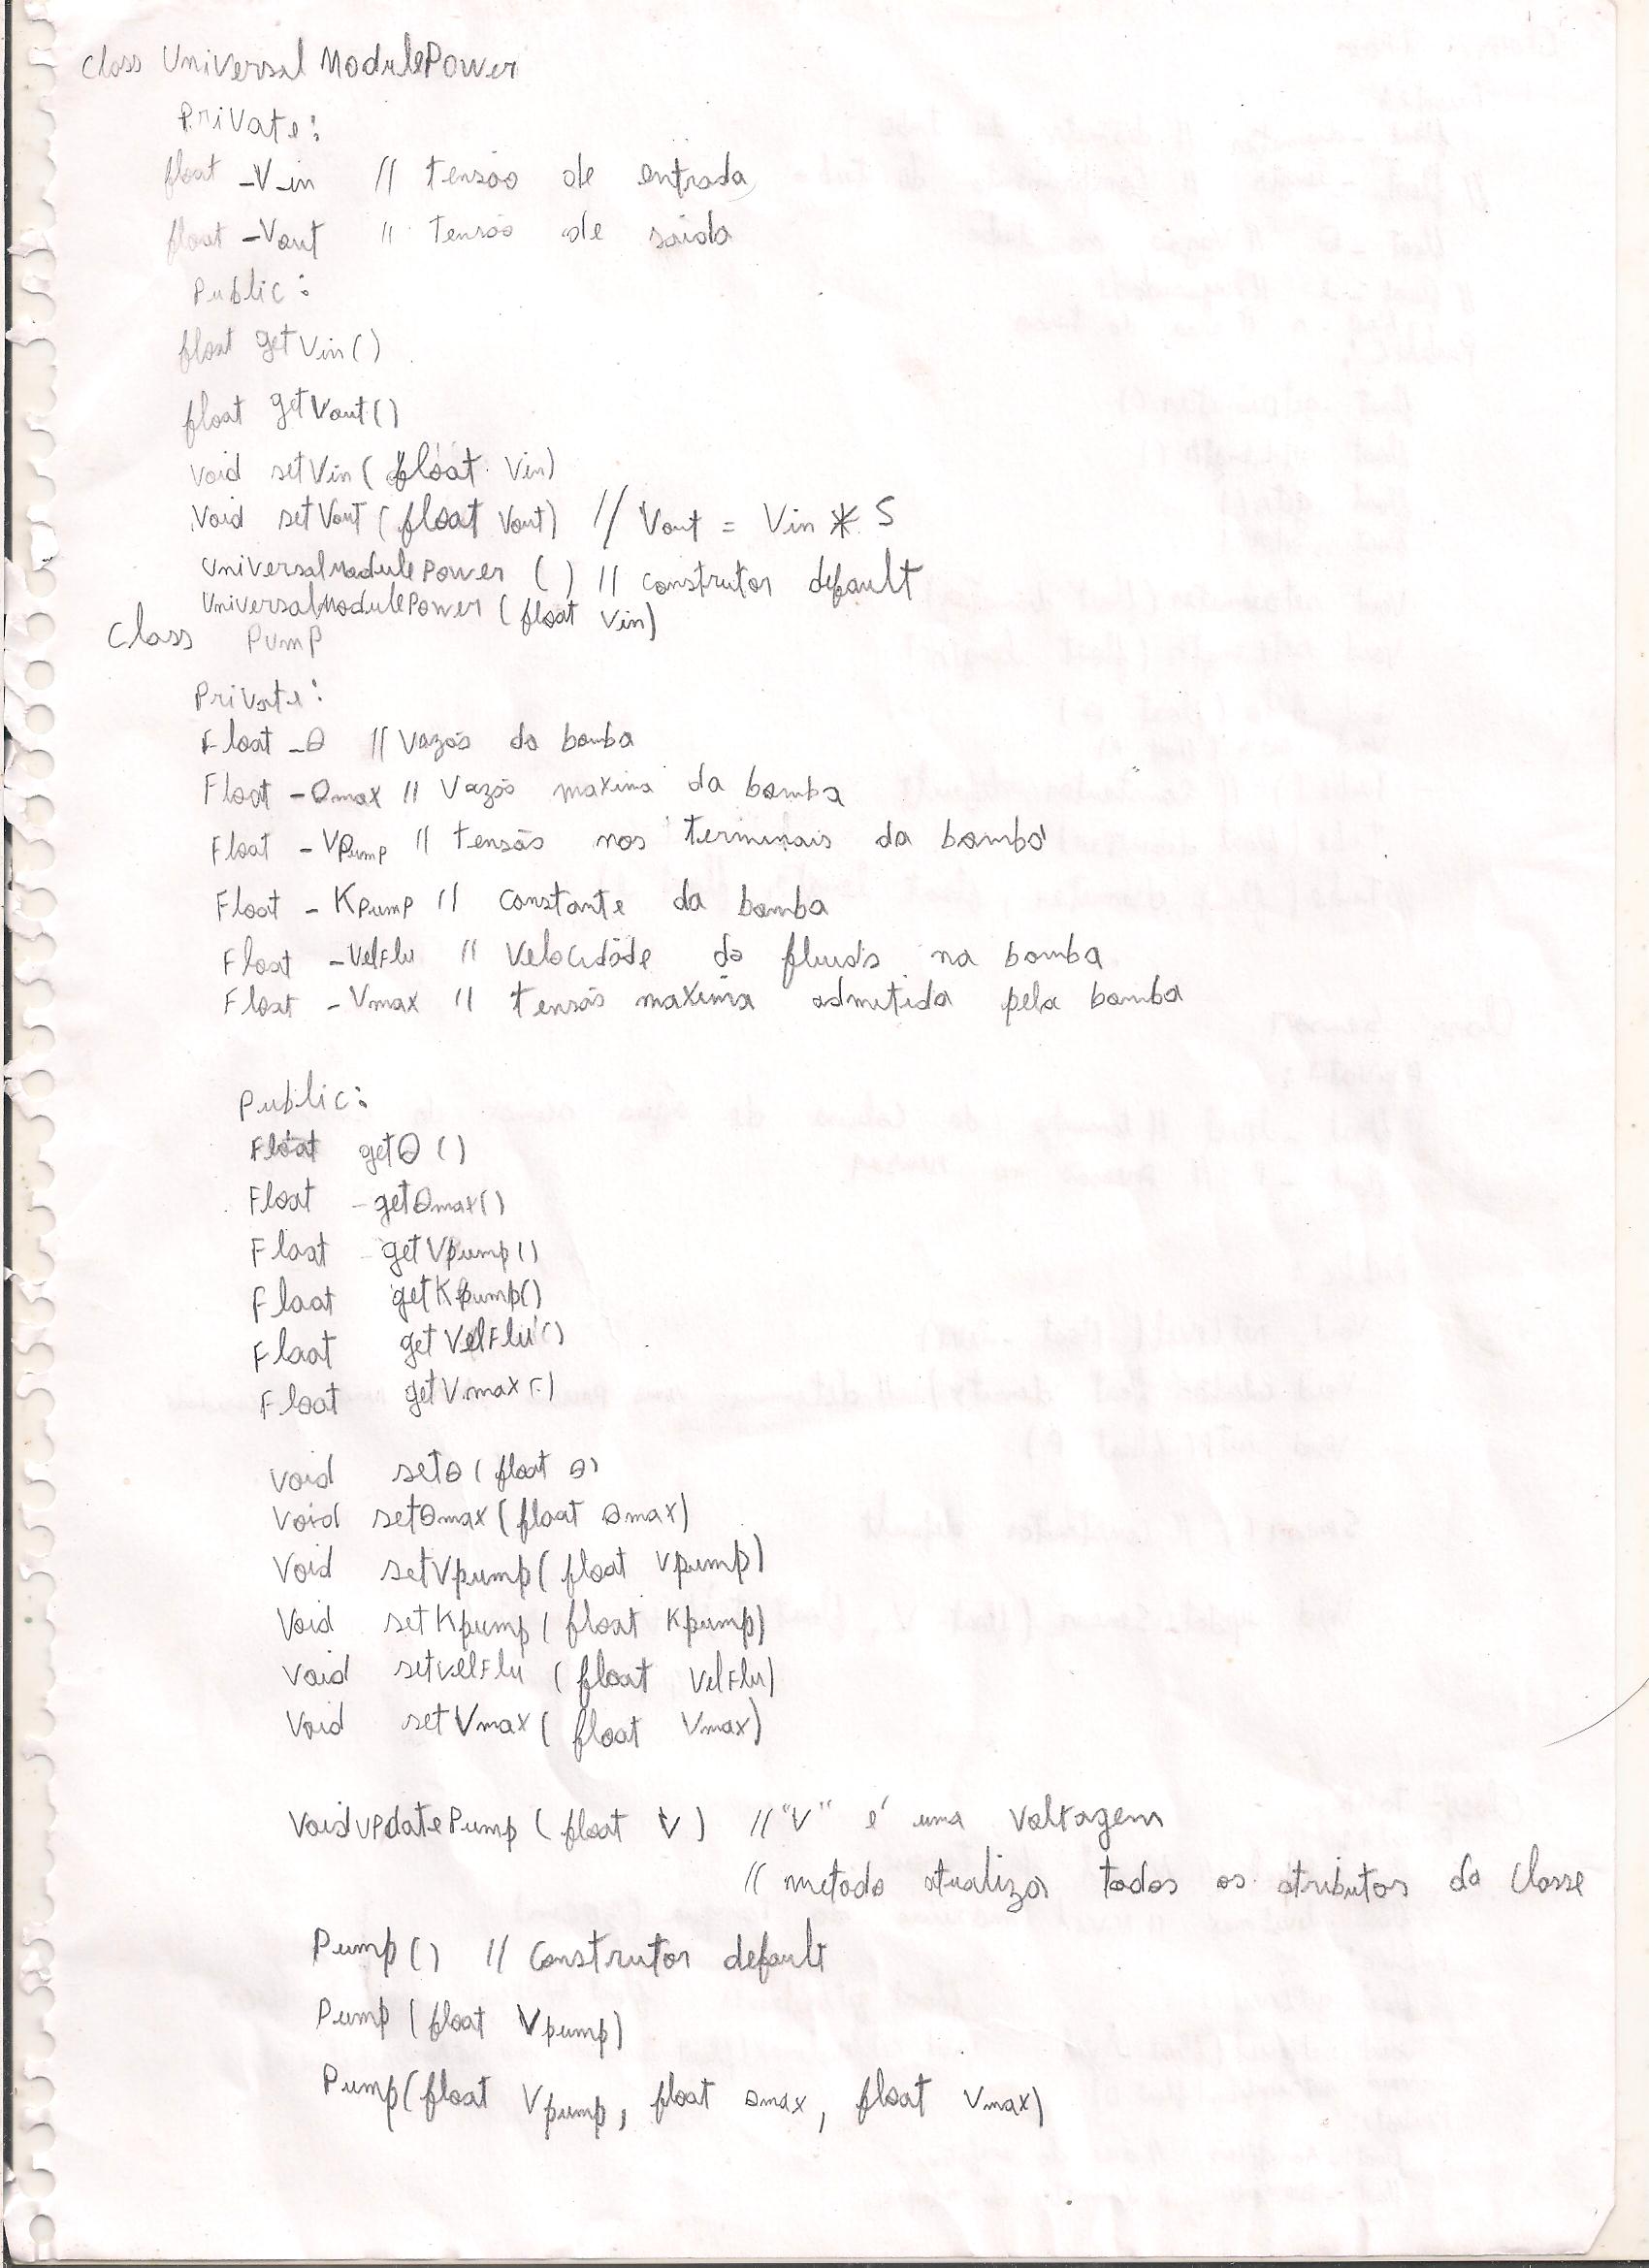 class UniversalModulePower
Private:
float _V_in // tensão de entrada
float _Vout // tensão de saída
Public:
float getVin()
float getVout()
void setVin(float Vin)
Void setVout(float Vout) // Vout = Vin * 5
UniversalModulePower () // construtor default
UniversalModulePower (float Vin)
Class Pump
Private:
Float _Q // Vazão da bomba
Float _Qmax // Vazão maxima da bomba
Float _VPump // tensão nos terminais da bomba
Float _KPump // constante da bomba
Float _VelFlu // Velocidade do fluido na bomba
Float _Vmax // tensão maxima admitida pela bomba
Public:
Float getQ ()
Float getQmax()
Float getVpump()
Float getKpump()
Float getVelFlu()
Float getVmax()
void setQ (float Q)
Void setQmax (float Qmax)
Void setVpump (float Vpump)
Void setKpump (float Kpump)
Void setVelFlu (float VelFlu)
Void setVmax (float Vmax)
Void updatePump (float V) // "V" é uma Voltagem
// metodo atualizar todos os atributos da Classe
Pump() // Construtor default
Pump (float Vpump)
Pump(float Vpump, float Qmax, float Vmax)